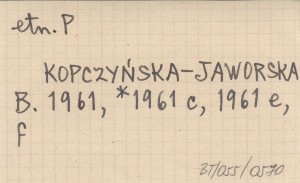 etn. P
KOPCZYŃSKA-JAWORSKA
B. 1961, *1961 c, 1961 e,
f
BT/055/0570